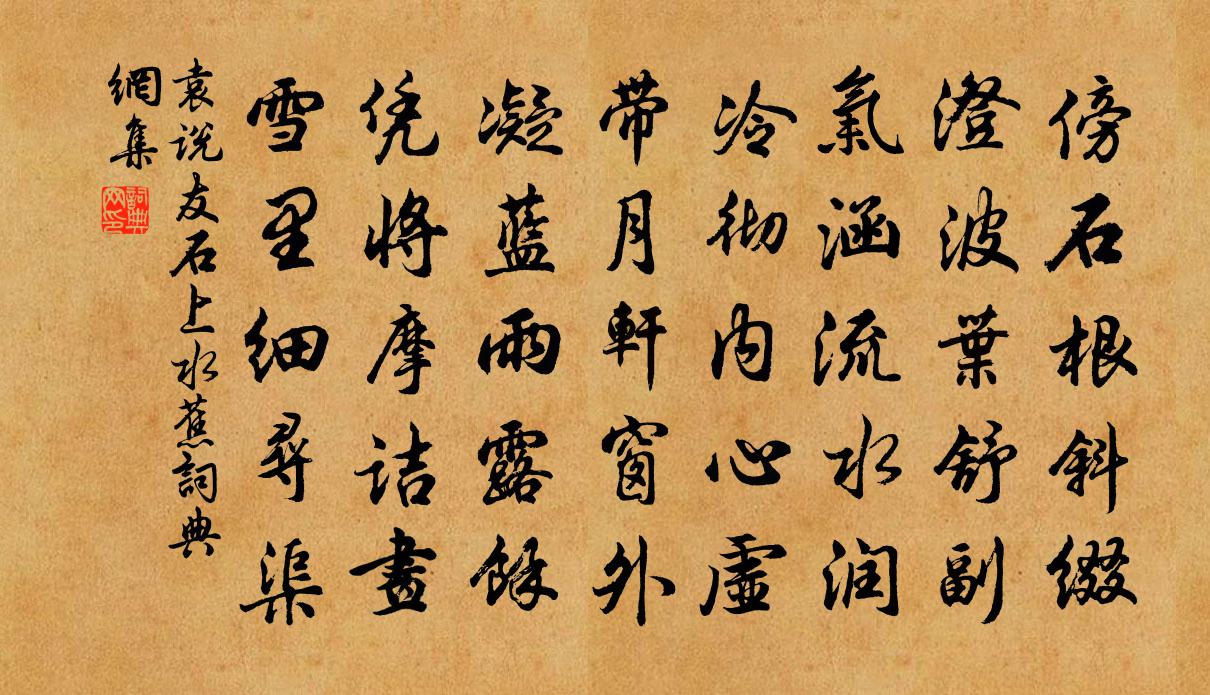 傍石根斜綴
澄波葉舒副
氣涵流水潤
冷彻内心虛
带月軒窗外
凝藍雨露餘
凭將摩詰畫
雪里细尋渠
袁说友石上水蕉詞典
網集
詞典網印